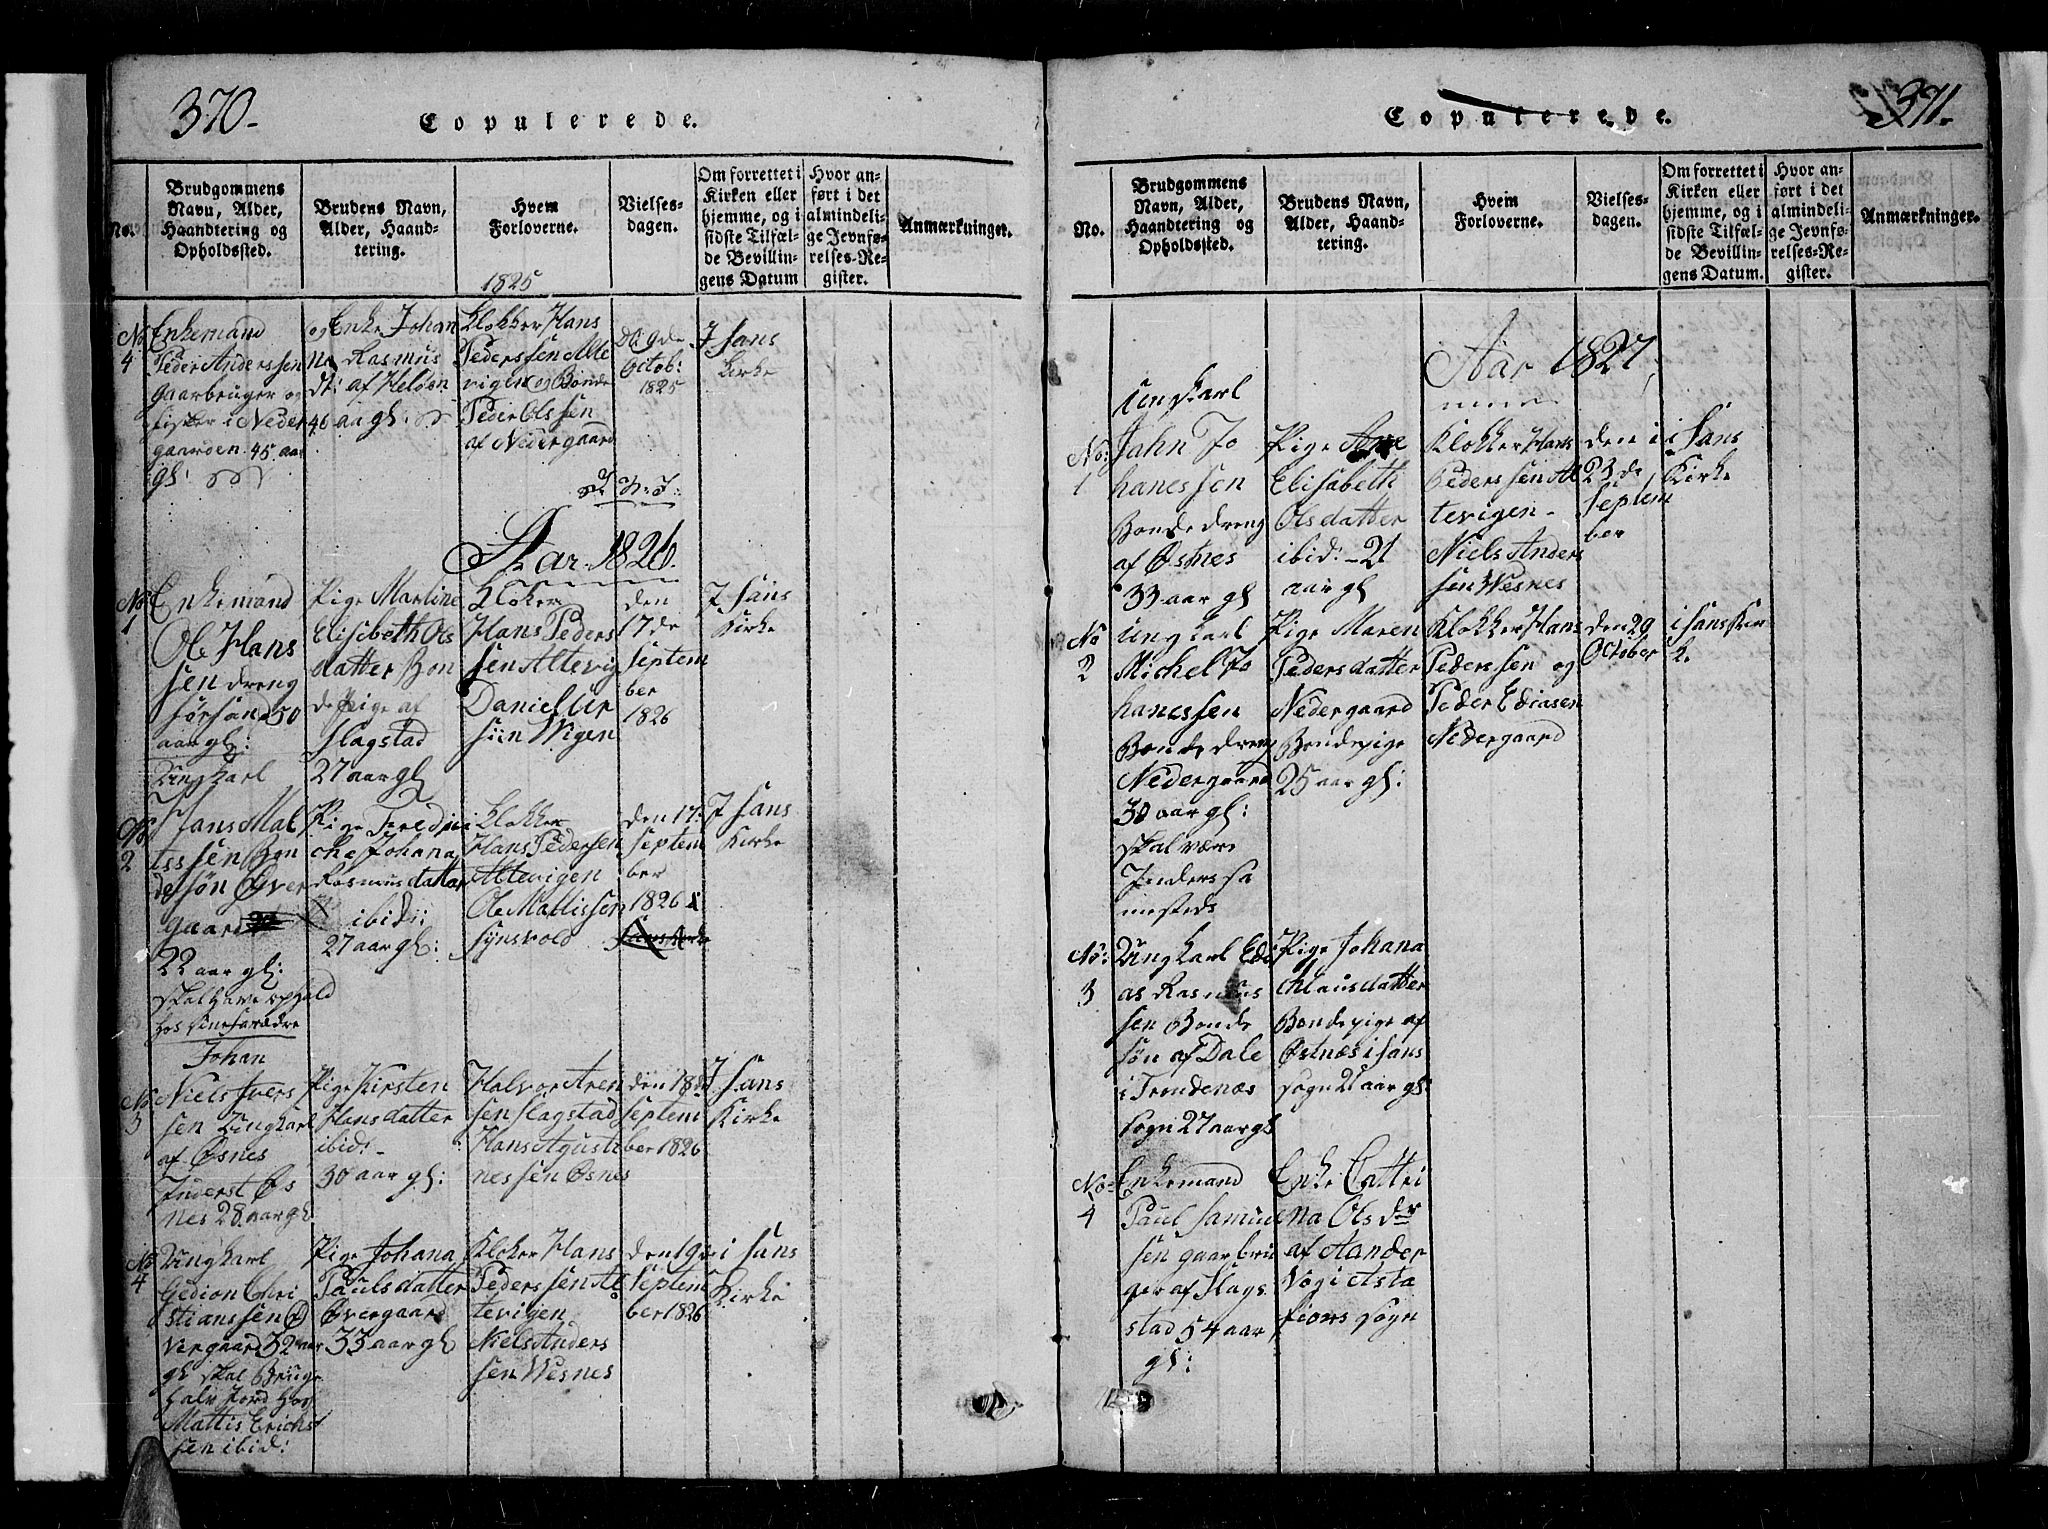 370.
Copulerede.
No.
Brudgommens
Navn, Alder,
Haandtering og
Opholdssted.
Brudens Navn,
Alder, Haand-
tering.
Hvem
Forloverne.
Vielses-
dagen.
Om forrettet i
Kirken eller
hjemme, og i
sidste Tilfæl-
de Bevillin-
gens Datum
Hvor an-
ført i det
almindeli-
ge Jevnfø-
relses-Re-
gister.
Anmærkninger.
1825
No
4
Enkemand
Peder Anderssen
gaarbruger og
fisker i Neder
gaarden 45 aar
gl:
og Enke Johan
na Rasmus
dt: af Heløen
46 aar gl:
Klokker Hans
Pederssen Alte
vigen og Bonde
Peder Olssen
af Nedergaard
D: 9de
Octob:
1825
I Sans
Kirke
Aar 1826.
No
1
Enkemand
Ole Hans
sen dreng
Sørsand 50
aar gl:
Pige Martine
Elisebeth Ols
datter Bon
de Pige af
Slagstad
27 aar gl
Kloker
Hans Peders
sen Altevig
Daniel Iver
siin Wigen
den
17de
Septem
ber
1826
I Sans
Kirke
No
2
Ungkarl
Hans Mat
issen Bon
desøn Over
gaard
22 aar gl:
skal have ophold
hos sine foreldre
Pige Fredri
che Johana
Rasmusdatter
ibid:
27 aar gl:
Klokker
Hans Pedersen
Altevigen
Ole Mattissen
Synsvold
den 17:
Septem
ber
1826
I Sans
Kirke
No
3
Johan
Niels Ivers
sen Ungkarl
af Øsnes
Inderst Øs
nes 28 aar gl
Pige Kirsten
Hansdatter
ibid:
30 aar gl:
Halvor Aren
sen Slagstad
Hans Agusti
nessen Øsnes
den 18de
Septem
ber 1826
I Sans
Kirke
No
4
Ungkarl
Gedion Chri
stianssen O
vergaard 32 aar
gl skal Bruge
halv Jord hos
Mattis Erichs
sen ibid:
Pige Johana
Paulsdatter
Overgaard
33 aar gl
Kloker Hans
Pederssen Al
tevigen
Niels Anders
sen Wesnes
den 19de
Septem
ber 1826
i Sans
Kirke
371.
Copulerede.
No.
Brudgommens
Navn, Alder,
Haandtering og
Opholdssted.
Brudens Navn,
Alder, Haand-
tering.
Hvem
Forloverne.
Vielses-
dagen.
Om forrettet i
Kirken eller
hjemme, og i
sidste Tilfæl-
de Bevillin-
gens Datum.
Hvor an-
ført i det
almindeli-
ge Jevnfø-
relses-Re-
gister.
Anmærkninger.
Aar 1827,
No:
1
Ungkarl
Jahn Jo
hanessen
Bonde dreng
af Østnes
33 aar gl
Pige Ane
Elisabeth
Olsdatter
ibid: - 21
aar gl
Klokker Hans
Pederssen Al
tevigen -
Niels Anders
sen Wesnes
den
23de
Septem
ber
i Sans
Kirke
No
2
Ungkarl
Michel Jo
hanessen
Bonde dreng
Nedergaard
30 aar gl:
skal være
Inderst sa
mesteds
Pige Maren
Pedersdatter
Nedergaard
Bondepige
25 aar gl:
Klokker Hans
Pederssen og
Peder Ediasen
Nedergaard
den 29
October
i Sans Kir
k.
No:
3
Ungkarl Edi
as Rasmus
sen Bonde
søn af Dale
i Trondenæs
sogn 27 aar gl
Pige Johana
Clausdatter
Bondepige af
Østnæs i Sans
sogn 21 aar gl:
No:
4
Enkemand
Paul Samuel
sen gaarbru
ger af Slags
stad 54 aar
gl:
Enke Cattri
na Olsdr
af Aander
Vog i Asta
fiors sogn